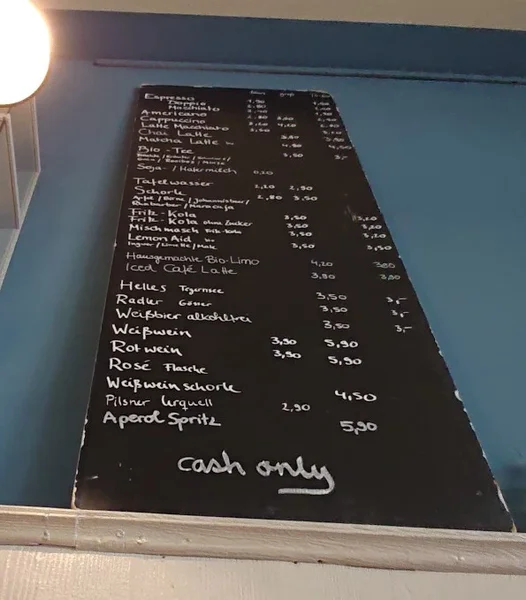 klein groß
Espresso 1,90
Doppio 2,80
Macchiato
Americano
Cappuccino 2,80
Latte Macchiato 3,20 4,20
Chai Latte 3,50
Matcha Latte 3,80
Bio-Tee 4,80
3,50 3,-
Soja-/Hafermilch 0,20
Tafelwasser 2,20 2,90
Schorle 2,80 3,50
Apfel/Birne/Johannisbeer/
Rhabarber/Maracuja
Fritz-Kola 3,50 3,20
Fritz-Kola ohne Zucker 3,50 3,20
Mischmasch Fritz-Kola 3,50 3,20
LemonAid 3,50 3,50
Ingwer/Limette/Mate
Hausgemachte Bio-Limo 4,20 3,80
Iced Café Latte 3,90 3,90
Helles Tegernsee 3,50 3,-
Radler Gösser 3,50 3,-
Weißbier alkoholfrei 3,50 3,-
Weißwein 3,90 5,90
Rotwein 3,90 5,90
Rosé Flasche
Weißweinschorle 4,50
Pilsner Urquell 2,90
Aperol Spritz 5,90
cash only